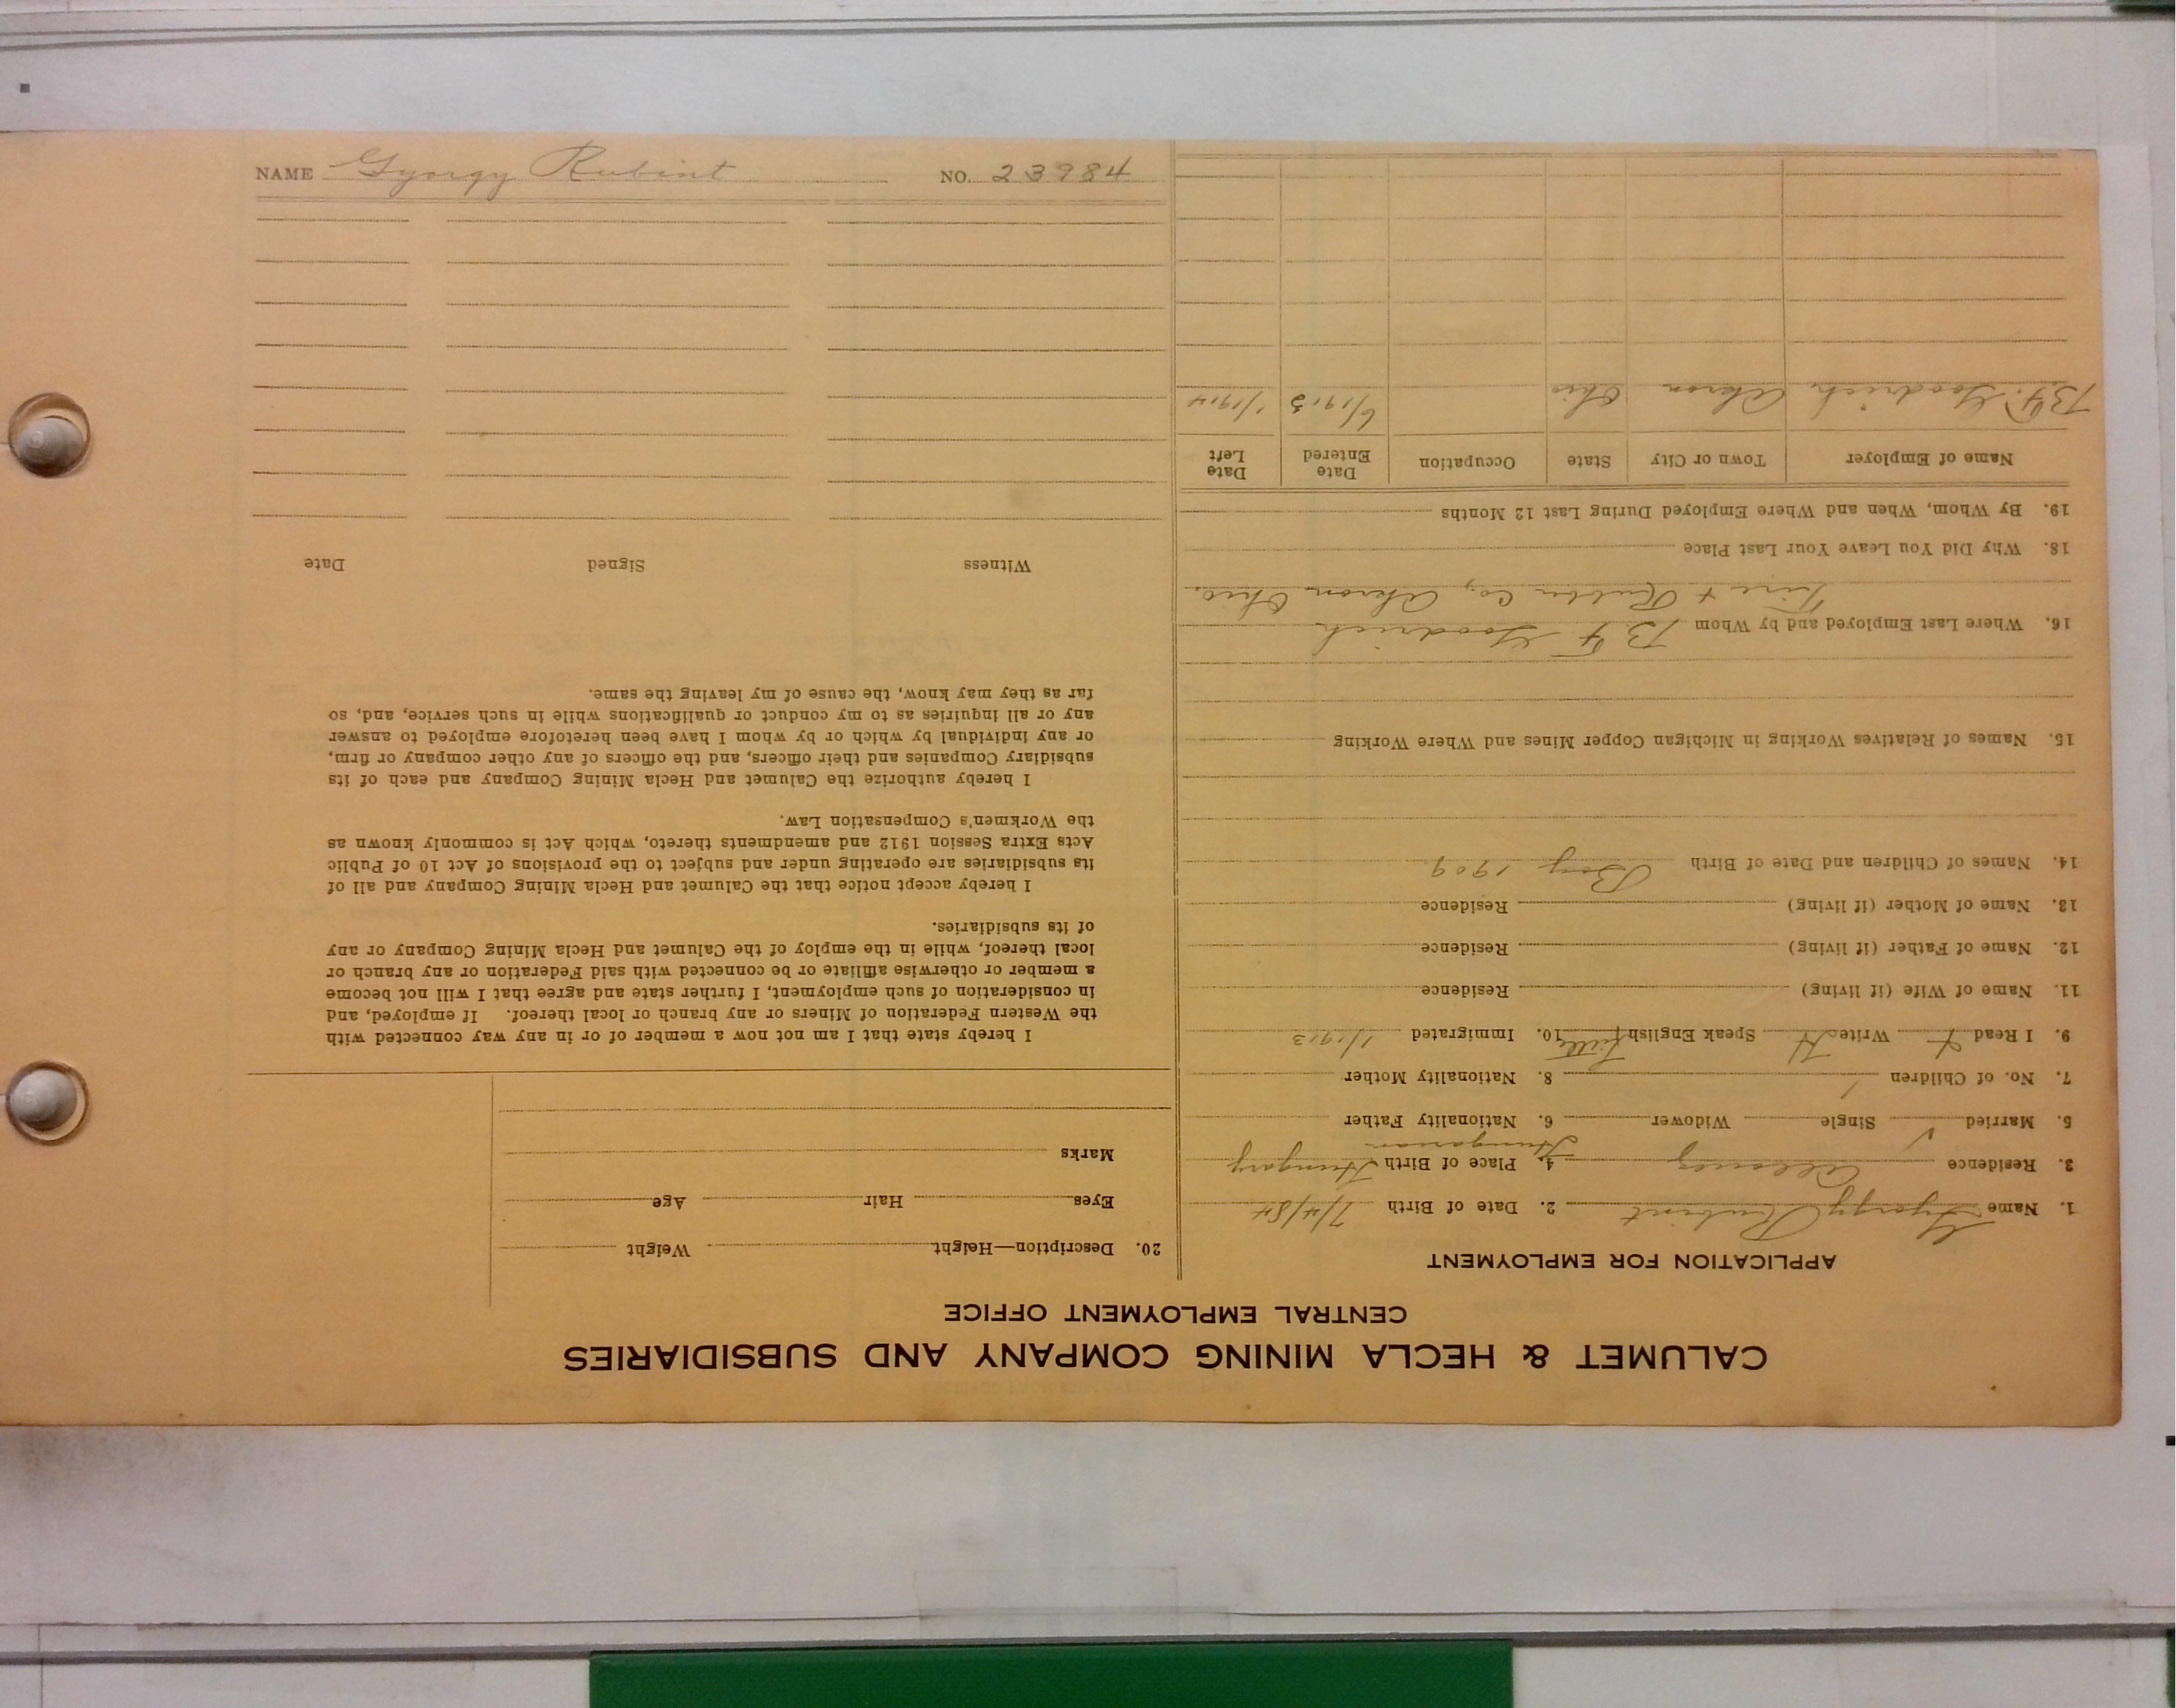 NAME Gyorgy Rubint NO. 23984
CALUMET & HECLA MINING COMPANY AND SUBSIDIARIES
CENTRAL EMPLOYMENT OFFICE
APPLICATION FOR EMPLOYMENT
1. Name Gyorgy Rubint 2. Date of Birth 7/4/84
3. Residence 4. Place of Birth Hungary
Hungarian
5. Married √ Single Widower 6. Nationality Father
7. No. of Children 1 8. Nationality Mother
9. I Read Write H Speak English little 10. Immigrated 1/1913
11. Name of Wife (if living) Residence
12. Name of Father (if living) Residence
13. Name of Mother (if living) Residence
14. Names of Children and Date of Birth Boy 1909.
15. Names of Relatives Working in Michigan Copper Mines and Where Working
16. Where Last Employed and by Whom B F Goodrich
Tire + Rubber Co, Akron Ohio.
18. Why Did You Leave Your Last Place
19. By Whom, When and Where Employed During Last 12 Months
Name of Employer Town or City State Occupation Date Entered Date Left
B.F. Goodrich Akron Ohio 6/1913 1/1914
20. Description—Height Weight
Eyes Hair Age
Marks
I hereby state that I am not now a member of or in any way connected with
the Western Federation of Miners or any branch or local thereof. If employed, and
in consideration of such employment, I further state and agree that I will not become
a member or otherwise affiliate or be connected with said Federation or any branch or
local thereof, while in the employ of the Calumet and Hecla Mining Company or any
of its subsidiaries.
I hereby accept notice that the Calumet and Hecla Mining Company and all of
its subsidiaries are operating under and subject to the provisions of Act 10 of Public
Acts Extra Session 1912 and amendments thereto, which Act is commonly known as
the Workmen's Compensation Law.
I hereby authorize the Calumet and Hecla Mining Company and each of its
subsidiary Companies and their officers, and the officers of any other company or firm,
or any individual by which or by whom I have been heretofore employed to answer
any or all inquiries as to my conduct or qualifications while in such service, and, so
far as they may know, the cause of my leaving the same.
Witness Signed Date